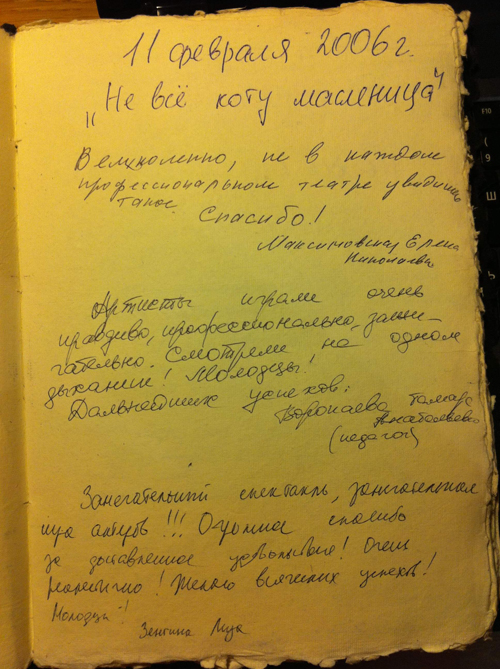 11 февраля 2006 г.
„Не всё коту масленица"
Великолепно, не в каждом
профессиональном театре увидишь
такое
Спасибо!
Максимовская Елена
Николаевна
Артисты играли очень
правдиво, профессионально, зажи-
гательно. Смотрели на одном
дыхании! Молодцы!
Дальнейших успехов!
Воропаева Тамара
Анатольевна
(педагог)
Зажигательный спектакль, зажигательная
игра актёров!!! Огромное спасибо
за доставленное удовольствие! Очень
реалистично! Желаю всяческих успехов!
Молодцы!
Зенгина Лиза